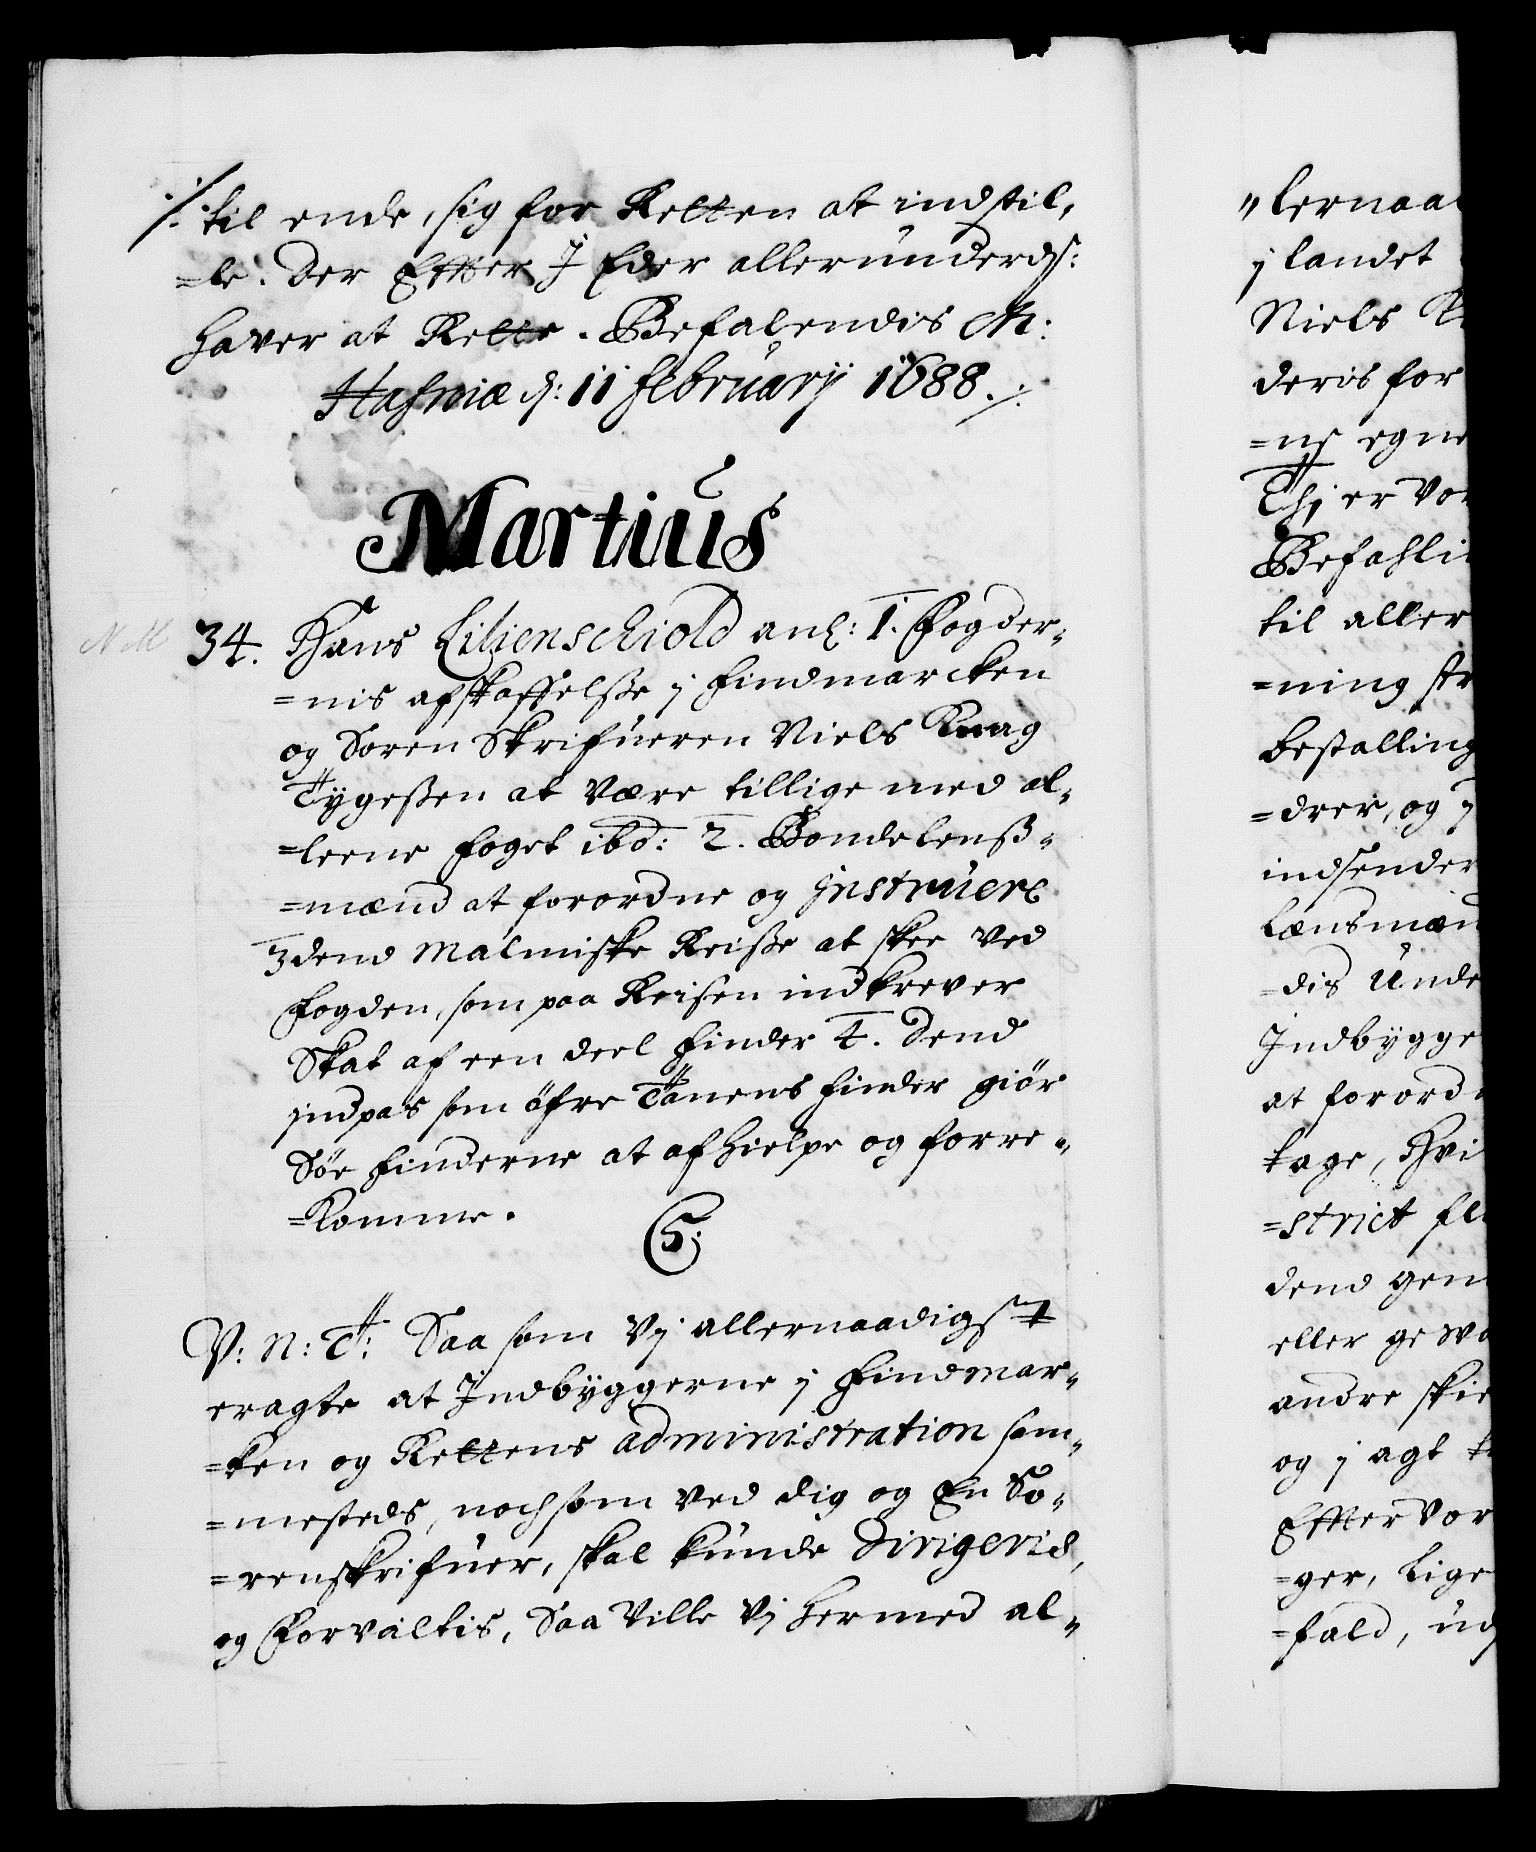 ·/. til ende, sig for Retten at indstil,
=le. Der Effter I Eder allerunderdß:
haver at Rette. Befalendis etc:
Hafniæ d: 11 februarij 1688 ./.
Martius
NM 34. Hans Lilienschiold anl: 1. Fogder„
=nis afskaffelsse j Findmarcken
og Soren Skrifueren Niels Knag
Tygessen at være tillige med al„
=leene foget ibd: 2. Bondelenß„
=mænd at forordne og Instruere
3 dend Malmiske Reisse at skee ved
Fogden, som paa Reisen indkrever
Skat af een deel Finder 4. Dend
jndpas som öfre Tanens Finder giör
Söe Finderne at afhielpe og forre„
=Komme.
C5:
V: N: T: Saa som Vj allernaadigst
eragte at Indbyggerne j Findmar„
=ken og Rettens administration sam„
=mesteds, noch som ved dig og En So„
=renskrifuer, skal kunde Dirigeris,
og Forvaltis, Saa Ville Vj hermed al„
„lernaa
j landet
Niels K
deris for
=nß egne
Thj er Vor
Befahli
til aller
=ning str
bestalling
=drer, og j
indsender
Lænsmæn
=dis Unde
Indbygge
at forord
tage, Hvi
=strict fl
dend gem
eller gewa
andre skie
og j agt t
Effter Vor
=ger, Lige
=fald, ud